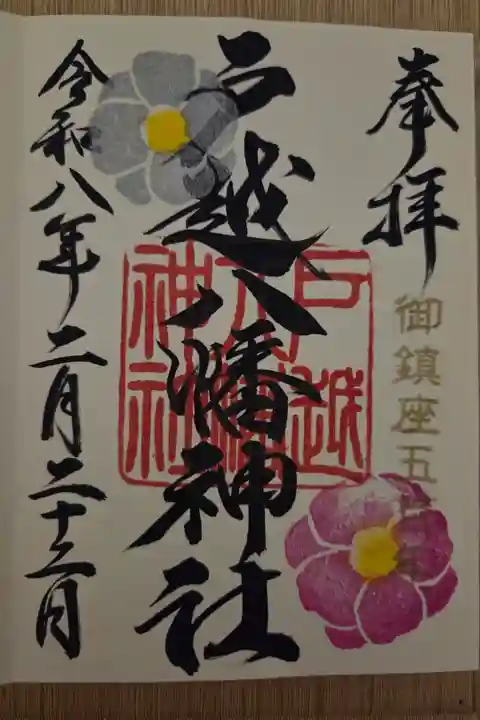 奉拝
御鎮座五百年
戸越八幡神社
戸越
八幡
神社
令和八年二月二十三日